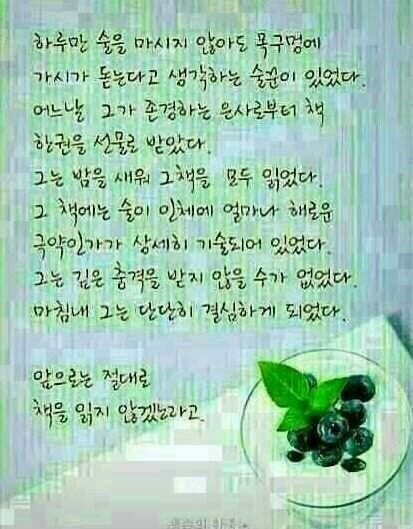 하루만 술을 마시지 않아도 목구멍에
가시가 돋는다고 생각하는 술꾼이 있었다.
어느날 그가 존경하는 은사로부터 책
한권을 선물로 받았다.
그는 밤을 새워 그책을 모두 읽었다.
그 책에는 술이 인체에 얼마나 해로운
극약인가가 상세히 기술되어 있었다.
그는 깊은 충격을 받지 않을 수가 없었다.
마침내 그는 단단히 결심하게 되었다.
앞으로는 절대로
책을 읽지 않겠노라고.